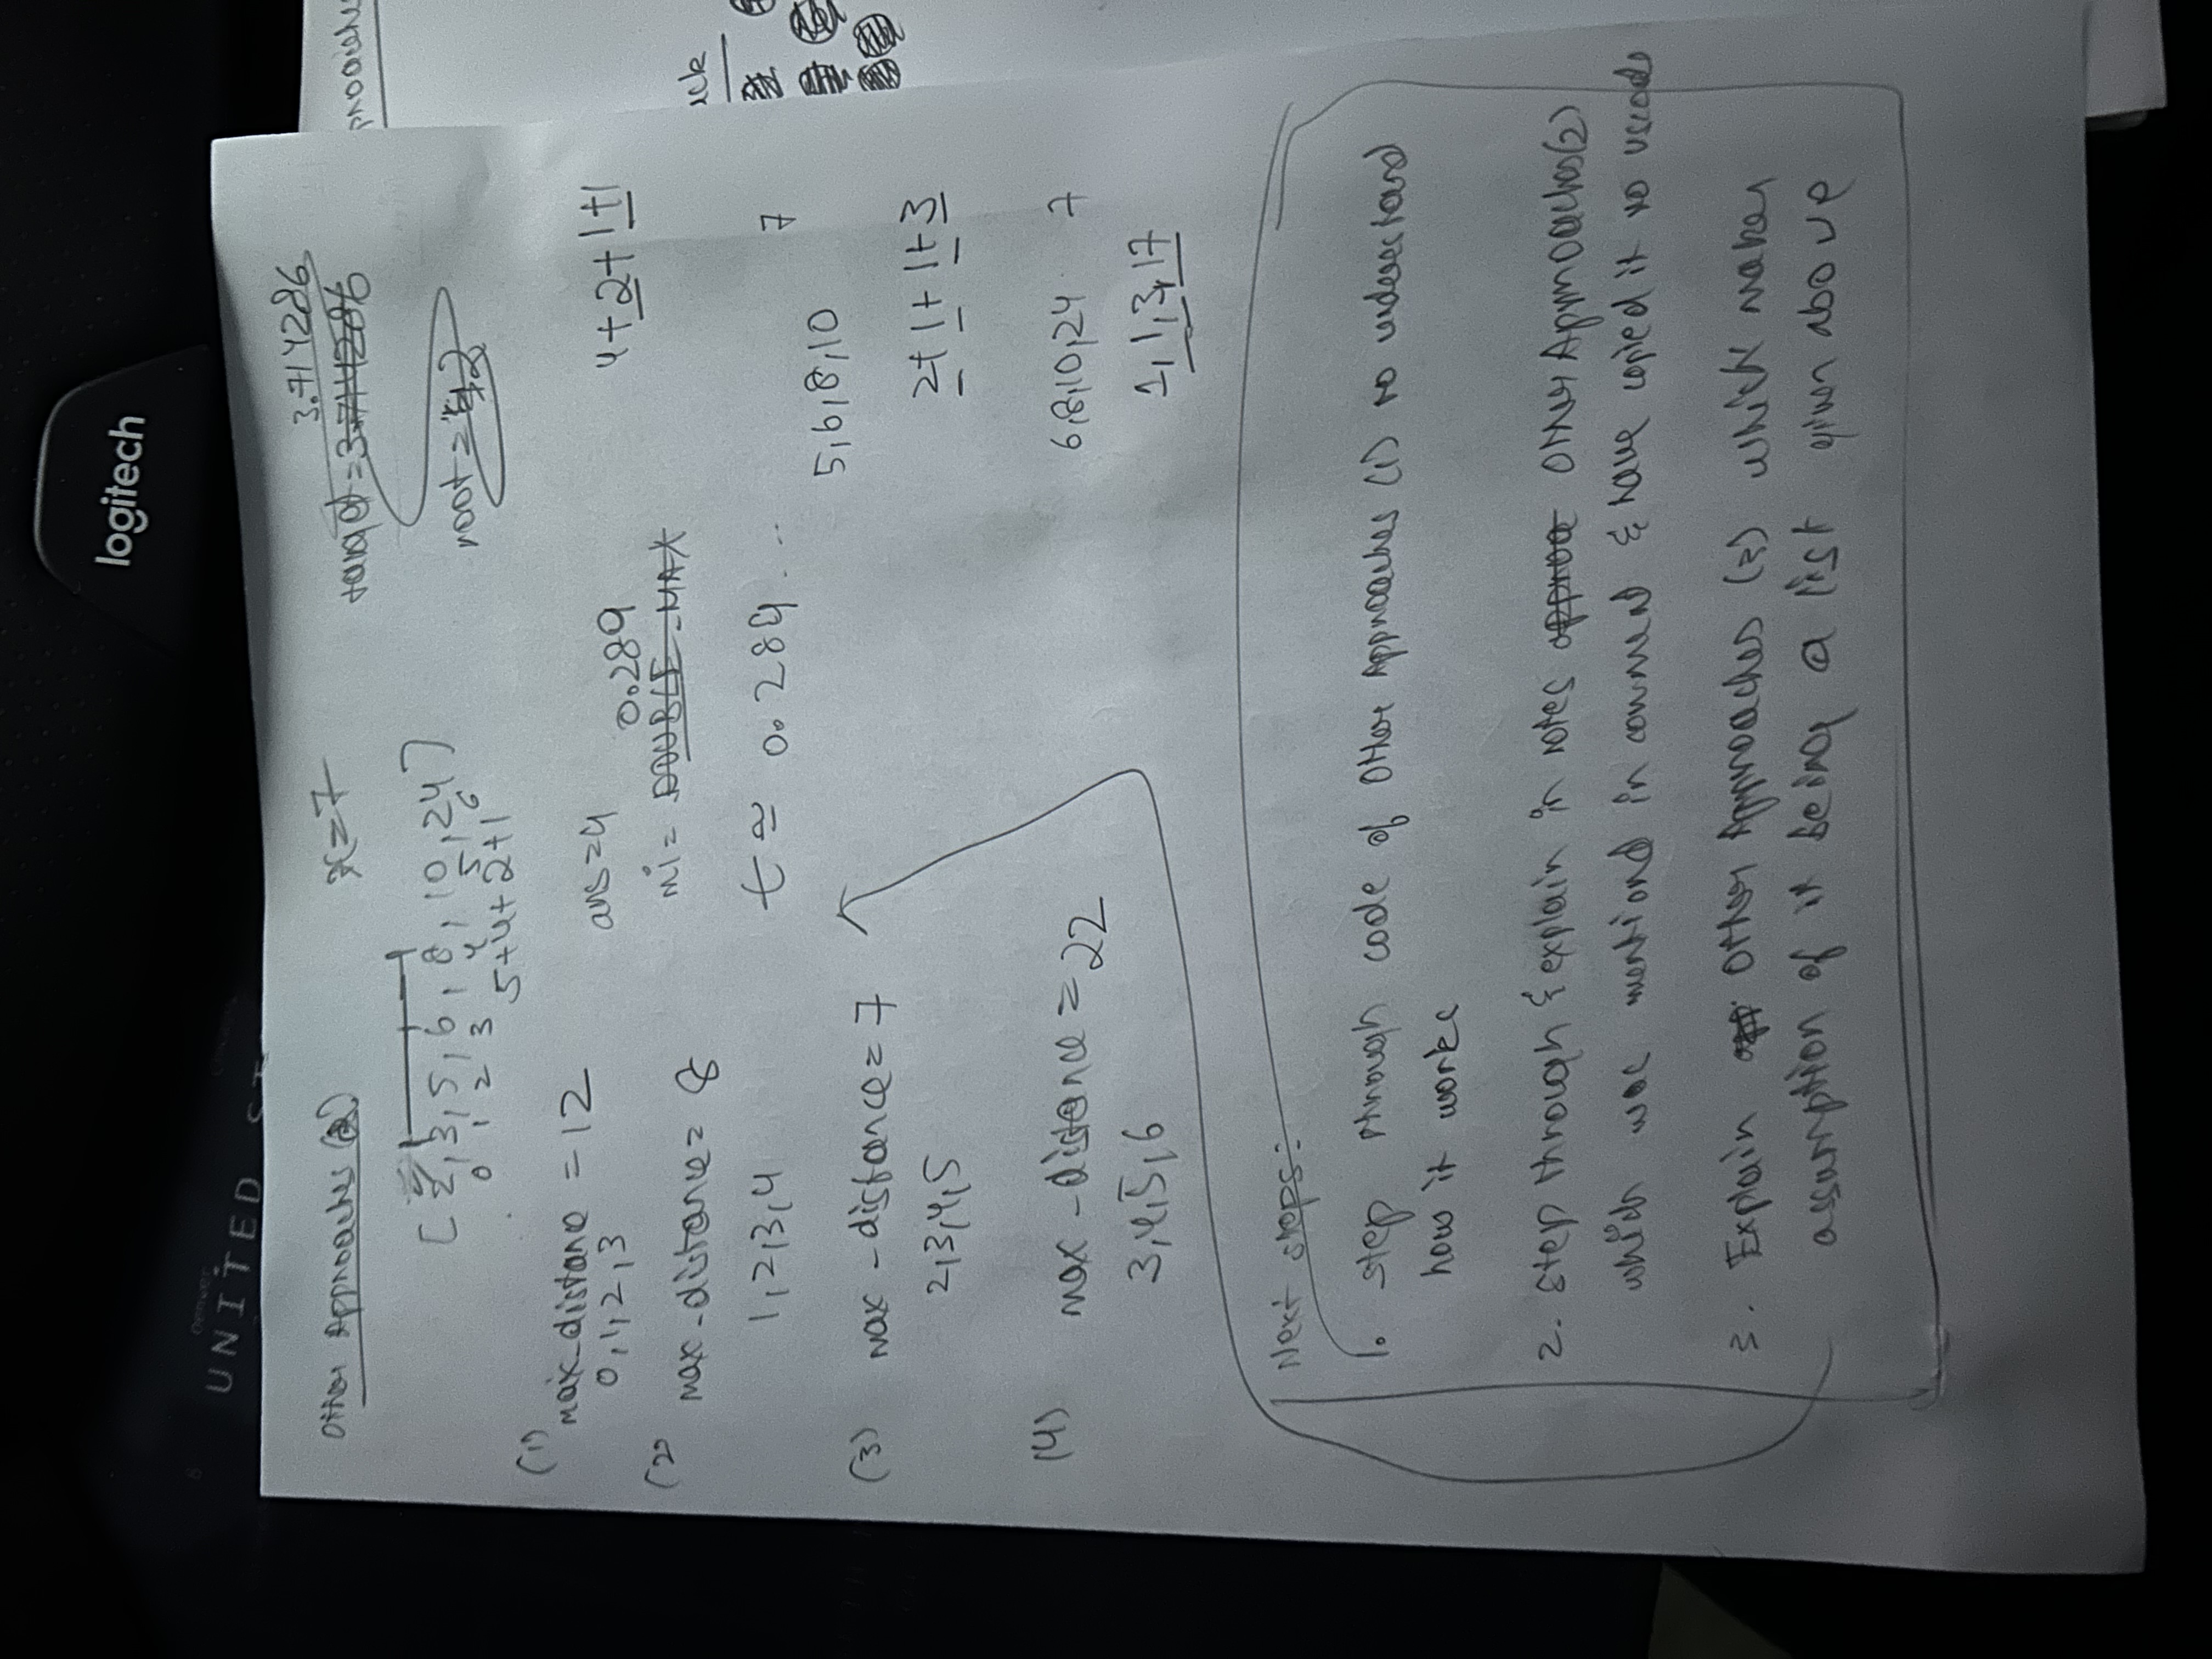 logitech
Denver
UNITED ST
Other Approaches (2)
x=7
3.714286
target = 3.714286
[2, 3, 5, 6, 8, 10, 24]
0 1 2 3 4 5 6
root =
2
5+4+2+1
(1)
max_distance = 12
0,1,2,3
ans=4
4+2+1+1
0.289
mi = DOUBLE_MAX
(2)
max_distance = 8
1,2,3,4
t ≃ 0.289...
7
5,6,8,10
(3)
max_distance = 7
2,3,4,5
2+1+1+3
(4)
max_distance = 22
3,4,5,6
6,8,10,24 7
1,1,3,17
Next steps:
1. step through code of Other Approaches (1) to understand
how it works
2. step through & explain in notes approa Other Approaches(2)
which was mentiond in comment & have copied it to vscode
3. Explain Other Approaches (3) which makes
assumption of it being a list given above
proaches
ick